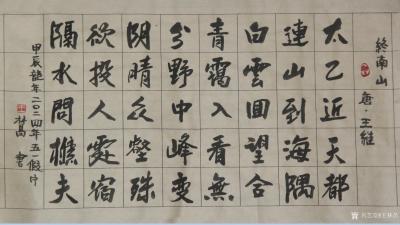 終南山
唐·王維
太乙近天都
連山到海隅
白雲回望合
青靄入看無
分野中峰變
阴晴众壑殊
欲投人處宿
隔水問樵夫
甲辰龍年二〇二四年五一假日
書